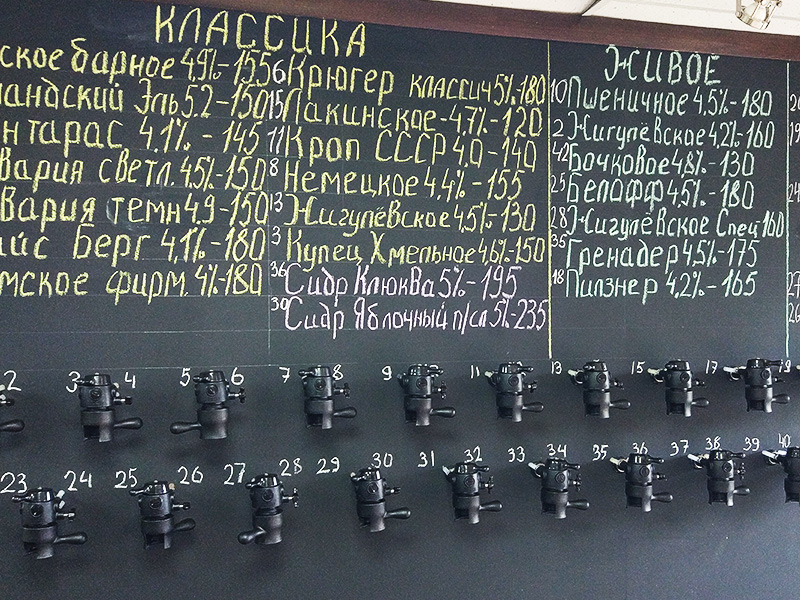 КЛАССИКА
ское барное 4,9%-155
андский Эль 5.2-150
нтарас 4.1% - 145
вария светл. 4,5%-150
вария темн 4.9-150
йс Берг 4,1%-180
мское фирм. 4%-180
6 Крюгер классич 5%-180
15 Лакинское-4,7%-120
11 Кроп СССР 4,0-140
8 Немецкое 4,4%-155
13 Жигулёвское 4,5%-130
3 Купец Хмельное 4,6%-150
36 Сидр Клюква 5%-195
30 Сидр Яблочный п/сл 5%-235
ЖИВОЕ
10 Пшеничное 4,5%-180
2 Жигулёвское 4,2%-160
42 Бочковое 4,8%-130
25 Белофф 4,5%-180
28 Жигулёвское Спец 160
35 Гренадер 4,5%-175
18 Пилзнер 4,2%-165
20
19
24
27
26
2 3 4 5 6 7 8 9 11 13 15 17 19
23 24 25 26 27 28 29 30 31 32 33 34 35 36 37 38 39 40